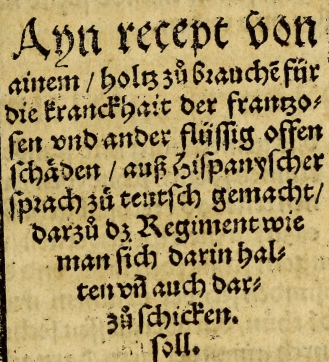 Ayn recept von
ainem / holtz zů brauchē für
die kranckhait der frantzo⸗
sen vnd ander flüssig offen
schäden / auß Hispanyscher
sprach zů teutsch gemacht /
darzů dz Regiment wie
man sich darin hal⸗
ten vñ auch dar⸗
zů schicken.
soll.